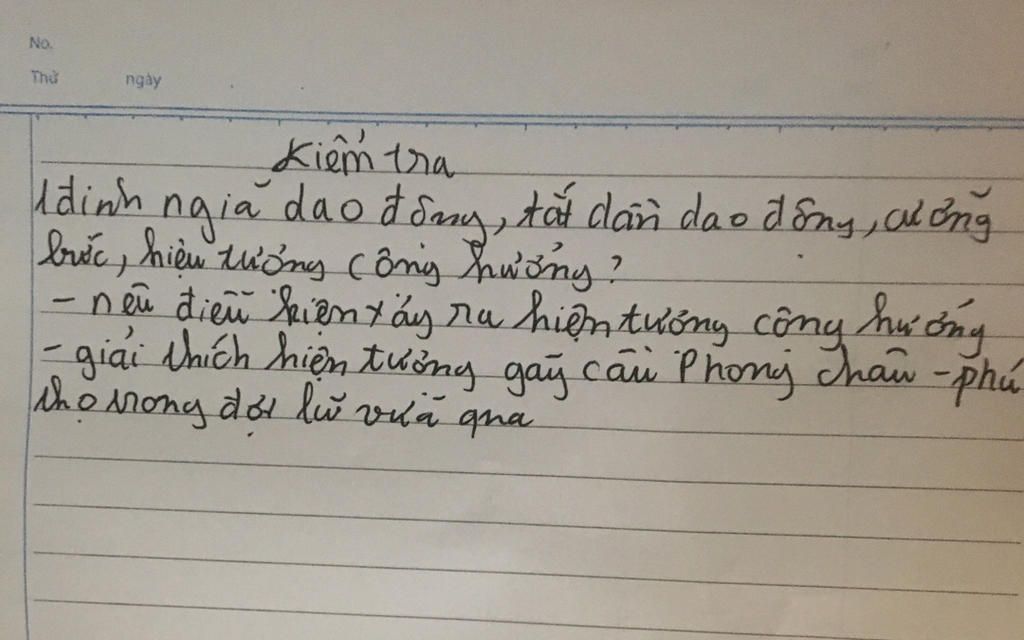 No.
Thứ ngày
Kiểm tra
1 đinh ngiã dao đông, tắt dần dao đông, cưỡng
bức, hiệu tưởng công hưởng?
- nêu điều kiện xảy ra hiện tướng công hướng
- giải thích hiện tưởng gãy cầu Phong châu - phú
thọ trong đợt lũ vừa qua